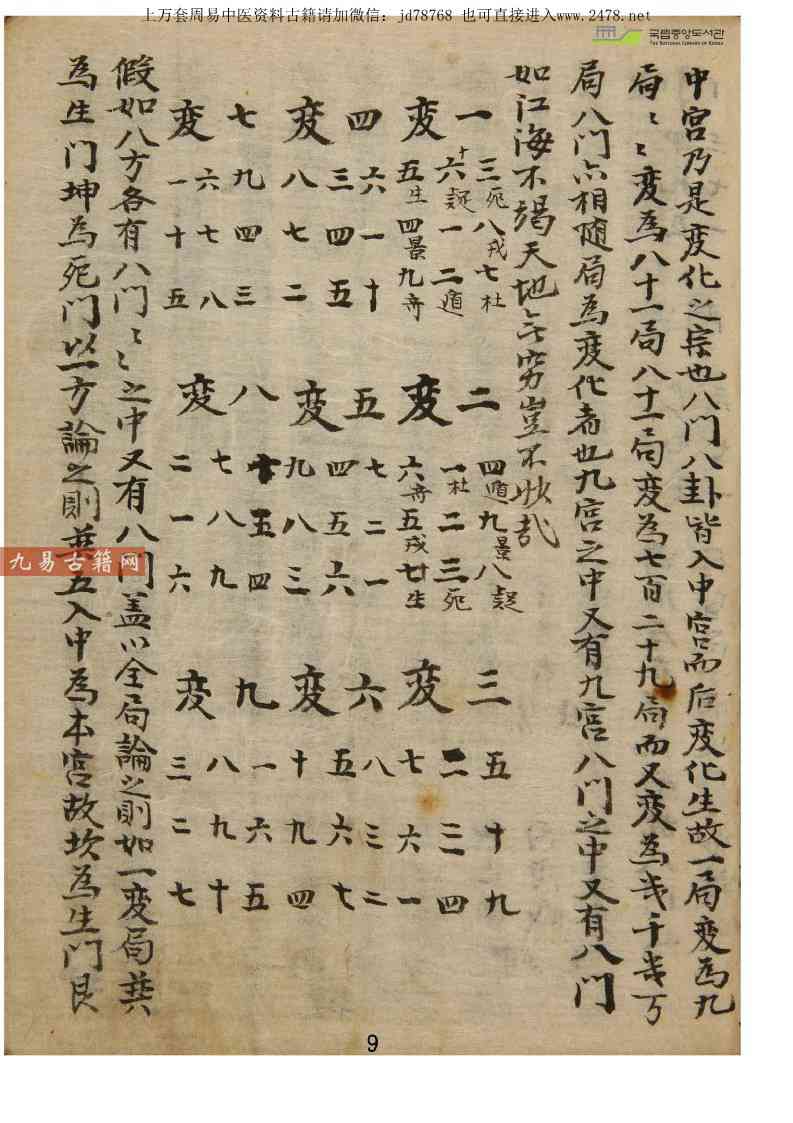 上万套周易中医资料古籍请加微信：jd78768 也可直接进入www.2478.net
국립중앙도서관
THE NATIONAL LIBRARY OF KOREA
中宮乃是变化之宗也八門八卦皆入中宮而后变化生故一局变為九
局〻变為八十一局八十一局变為七百二十九局而又变為幾千幾万
局八門亦相随局為变化者也九宮之中又有九宮八門之中又有八門
如江海不竭天地無穷豈不妙哉
一变
三死八戎七杜
十六一二遁
五生四景九奇
二变
四遁九景八
一杜二三死
六奇五戎生
三变
五十九
二三四
七六一
四变
六一十
三四五
八七二
五变
七二一
四五六
九八三
六变
八三二
五六七
十九四
七变
九四三
六七八
一十五
八变
十五四
七八九
二一六
九变
一六五
八九十
三二七
假如八方各有八門〻之中又有八門盖以全局論之則如一变局
為生門坤為死門以一方論之則五入中為本宮故坎為生門艮
九易古籍网
9